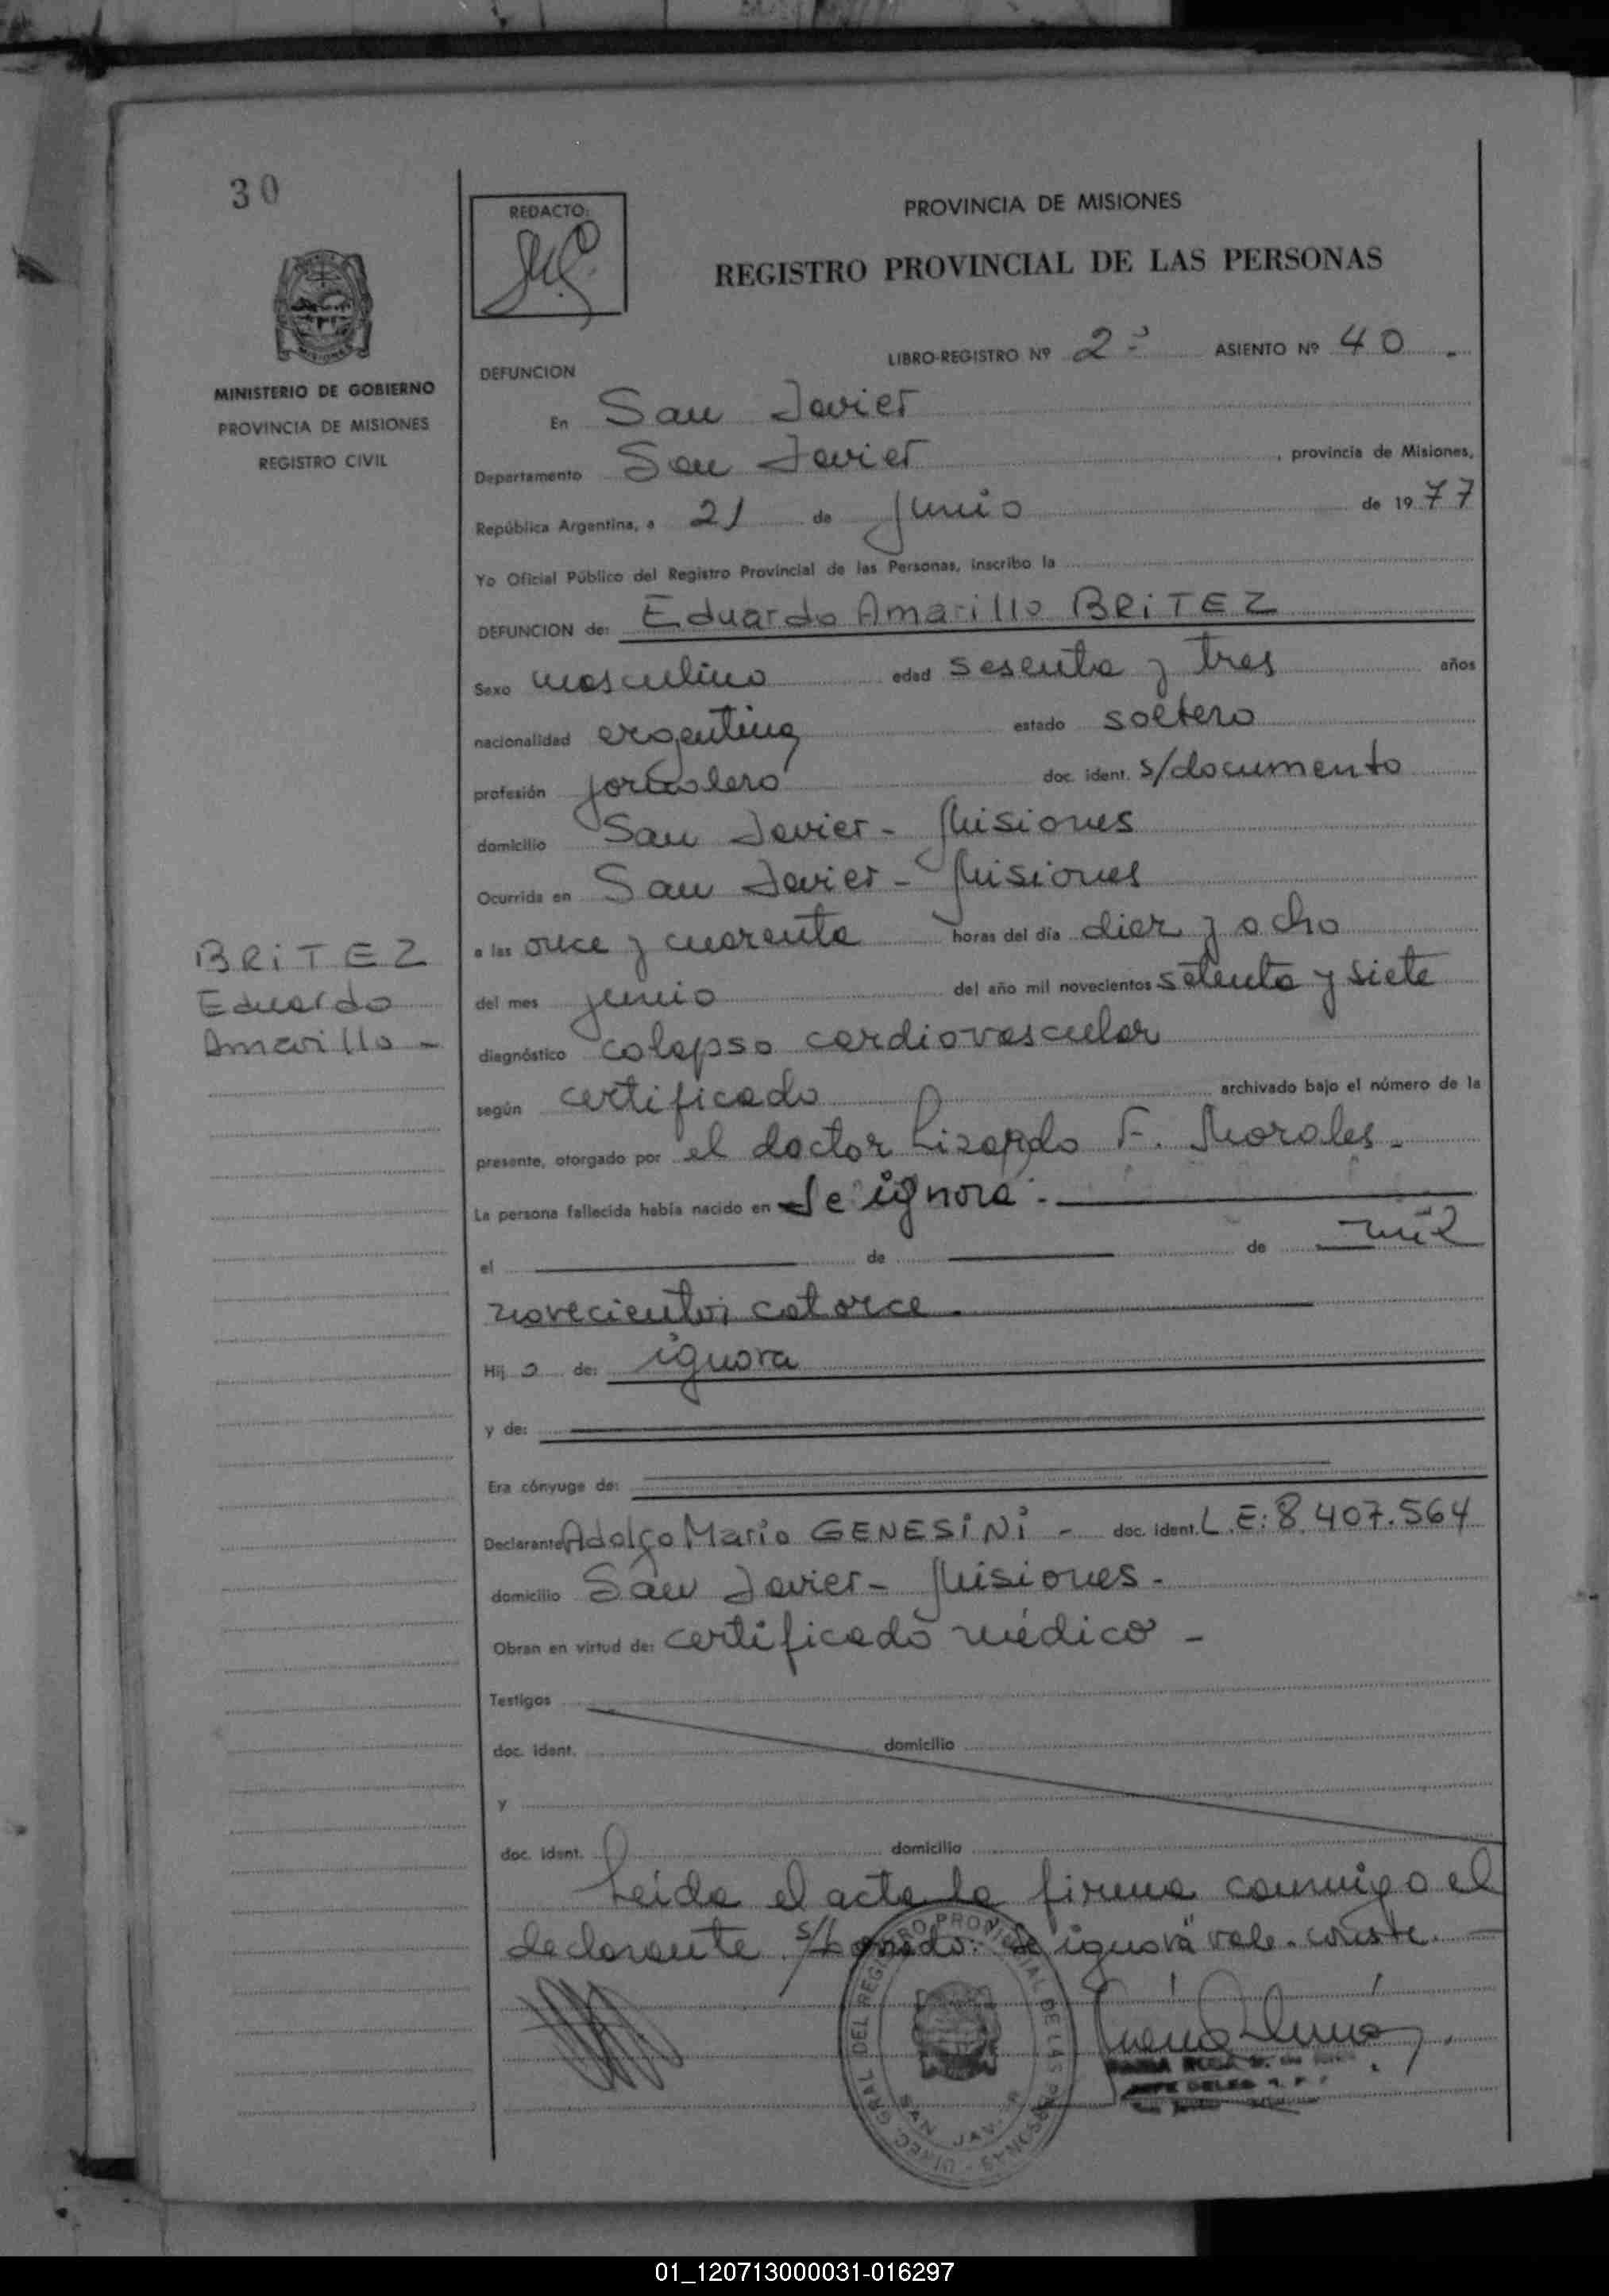 30
REDACTO:
PROVINCIA DE MISIONES
REGISTRO PROVINCIAL DE LAS PERSONAS
MINISTERIO DE GOBIERNO
PROVINCIA DE MISIONES
REGISTRO CIVIL
LIBRO-REGISTRO Nº 2º ASIENTO Nº 40
DEFUNCION
En San Javier
Departamento San Javier, provincia de Misiones,
República Argentina, a 21 de junio de 1977
Yo Oficial Público del Registro Provincial de las Personas, inscribo la
DEFUNCION de: Eduardo Amarillo BRITEZ
Sexo masculino edad sesenta y tres años
nacionalidad argentina estado soltero
profesión jornalero doc. ident. s/documento
domicilio San Javier - Misiones
Ocurrida en San Javier - Misiones
a las once y cuarenta horas del día diez y ocho
del mes junio del año mil novecientos setenta y siete
diagnóstico colapso cardiovascular
según certificado archivado bajo el número de la
presente, otorgado por el doctor Lizardo F. Morales -
La persona fallecida había nacido en Se ignora -
el de de mil
novecientos catorce.
Hijo de: ignora
y de:
Era cónyuge de:
Declarante Adolfo Mario GENESINI - doc. ident. L.E: 8.407.564
domicilio San Javier - Misiones -
Obran en virtud de: certificado médico -
Testigos
doc. ident. domicilio
y
doc. ident. domicilio
Leída el acta la firma conmigo el
declarante s/borrado: "Se ignora" vale. conste.
BRITEZ
Eduardo
Amarillo -
DIREC. GRAL. DEL REGISTRO PROVINCIAL DE LAS PERSONAS
01_120713000031-016297